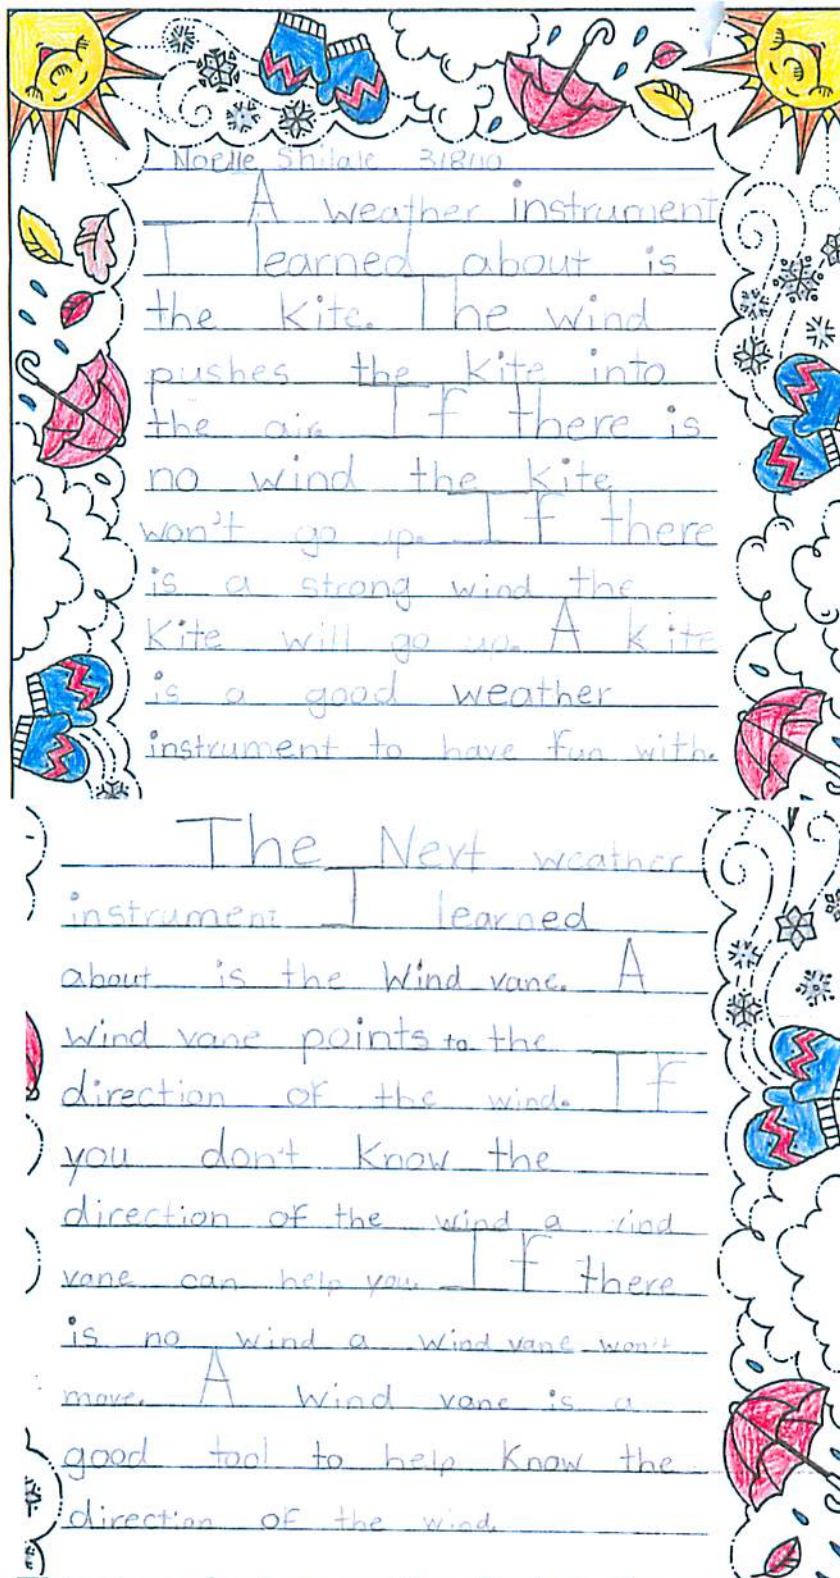 Noelle Shilale 3/8/10
A weather instrument
I learned about is
the kite. The wind
pushes the kite into
the air. If there is
no wind the kite
won't go up. If there
is a strong wind the
kite will go up. A kite
is a good weather
instrument to have fun with.
The Next weather
instrument I learned
about is the Wind vane. A
wind vane points to the
direction of the wind. If
you don't know the
direction of the wind a wind
vane can help you. If there
is no wind a wind vane won't
move. A wind vane is a
good tool to help know the
direction of the wind.